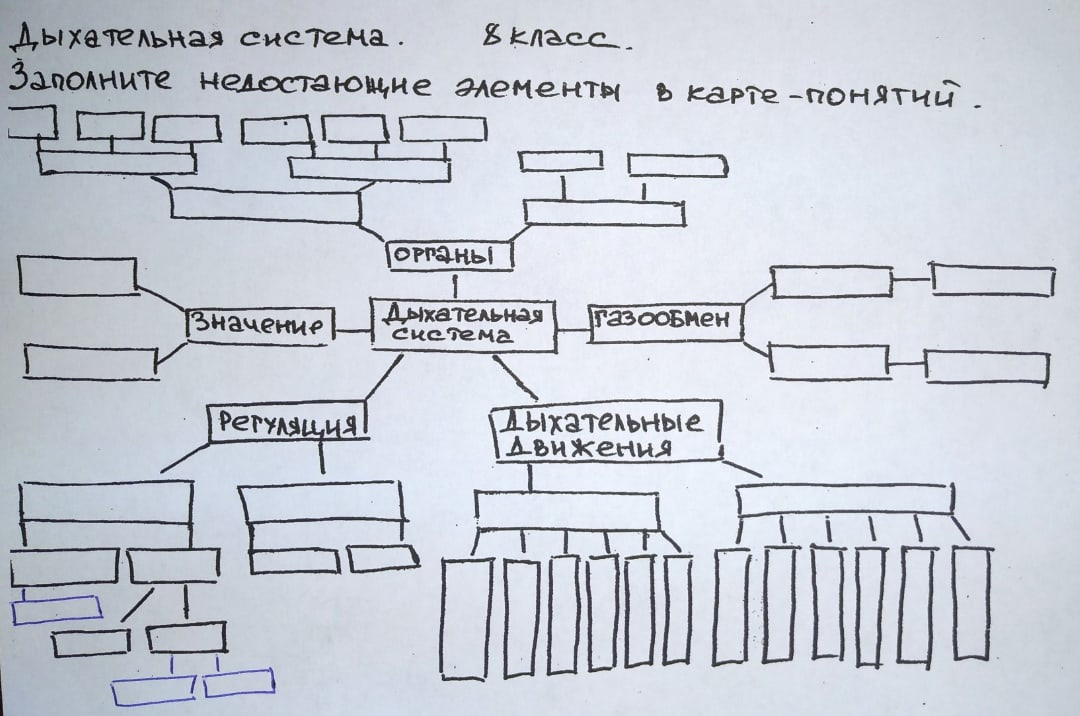 Дыхательная система. 8 класс.
Заполните недостающие элементы в карте-понятий.
органы
Значение
Дыхательная
система
газообмен
Регуляция
Дыхательные
движения